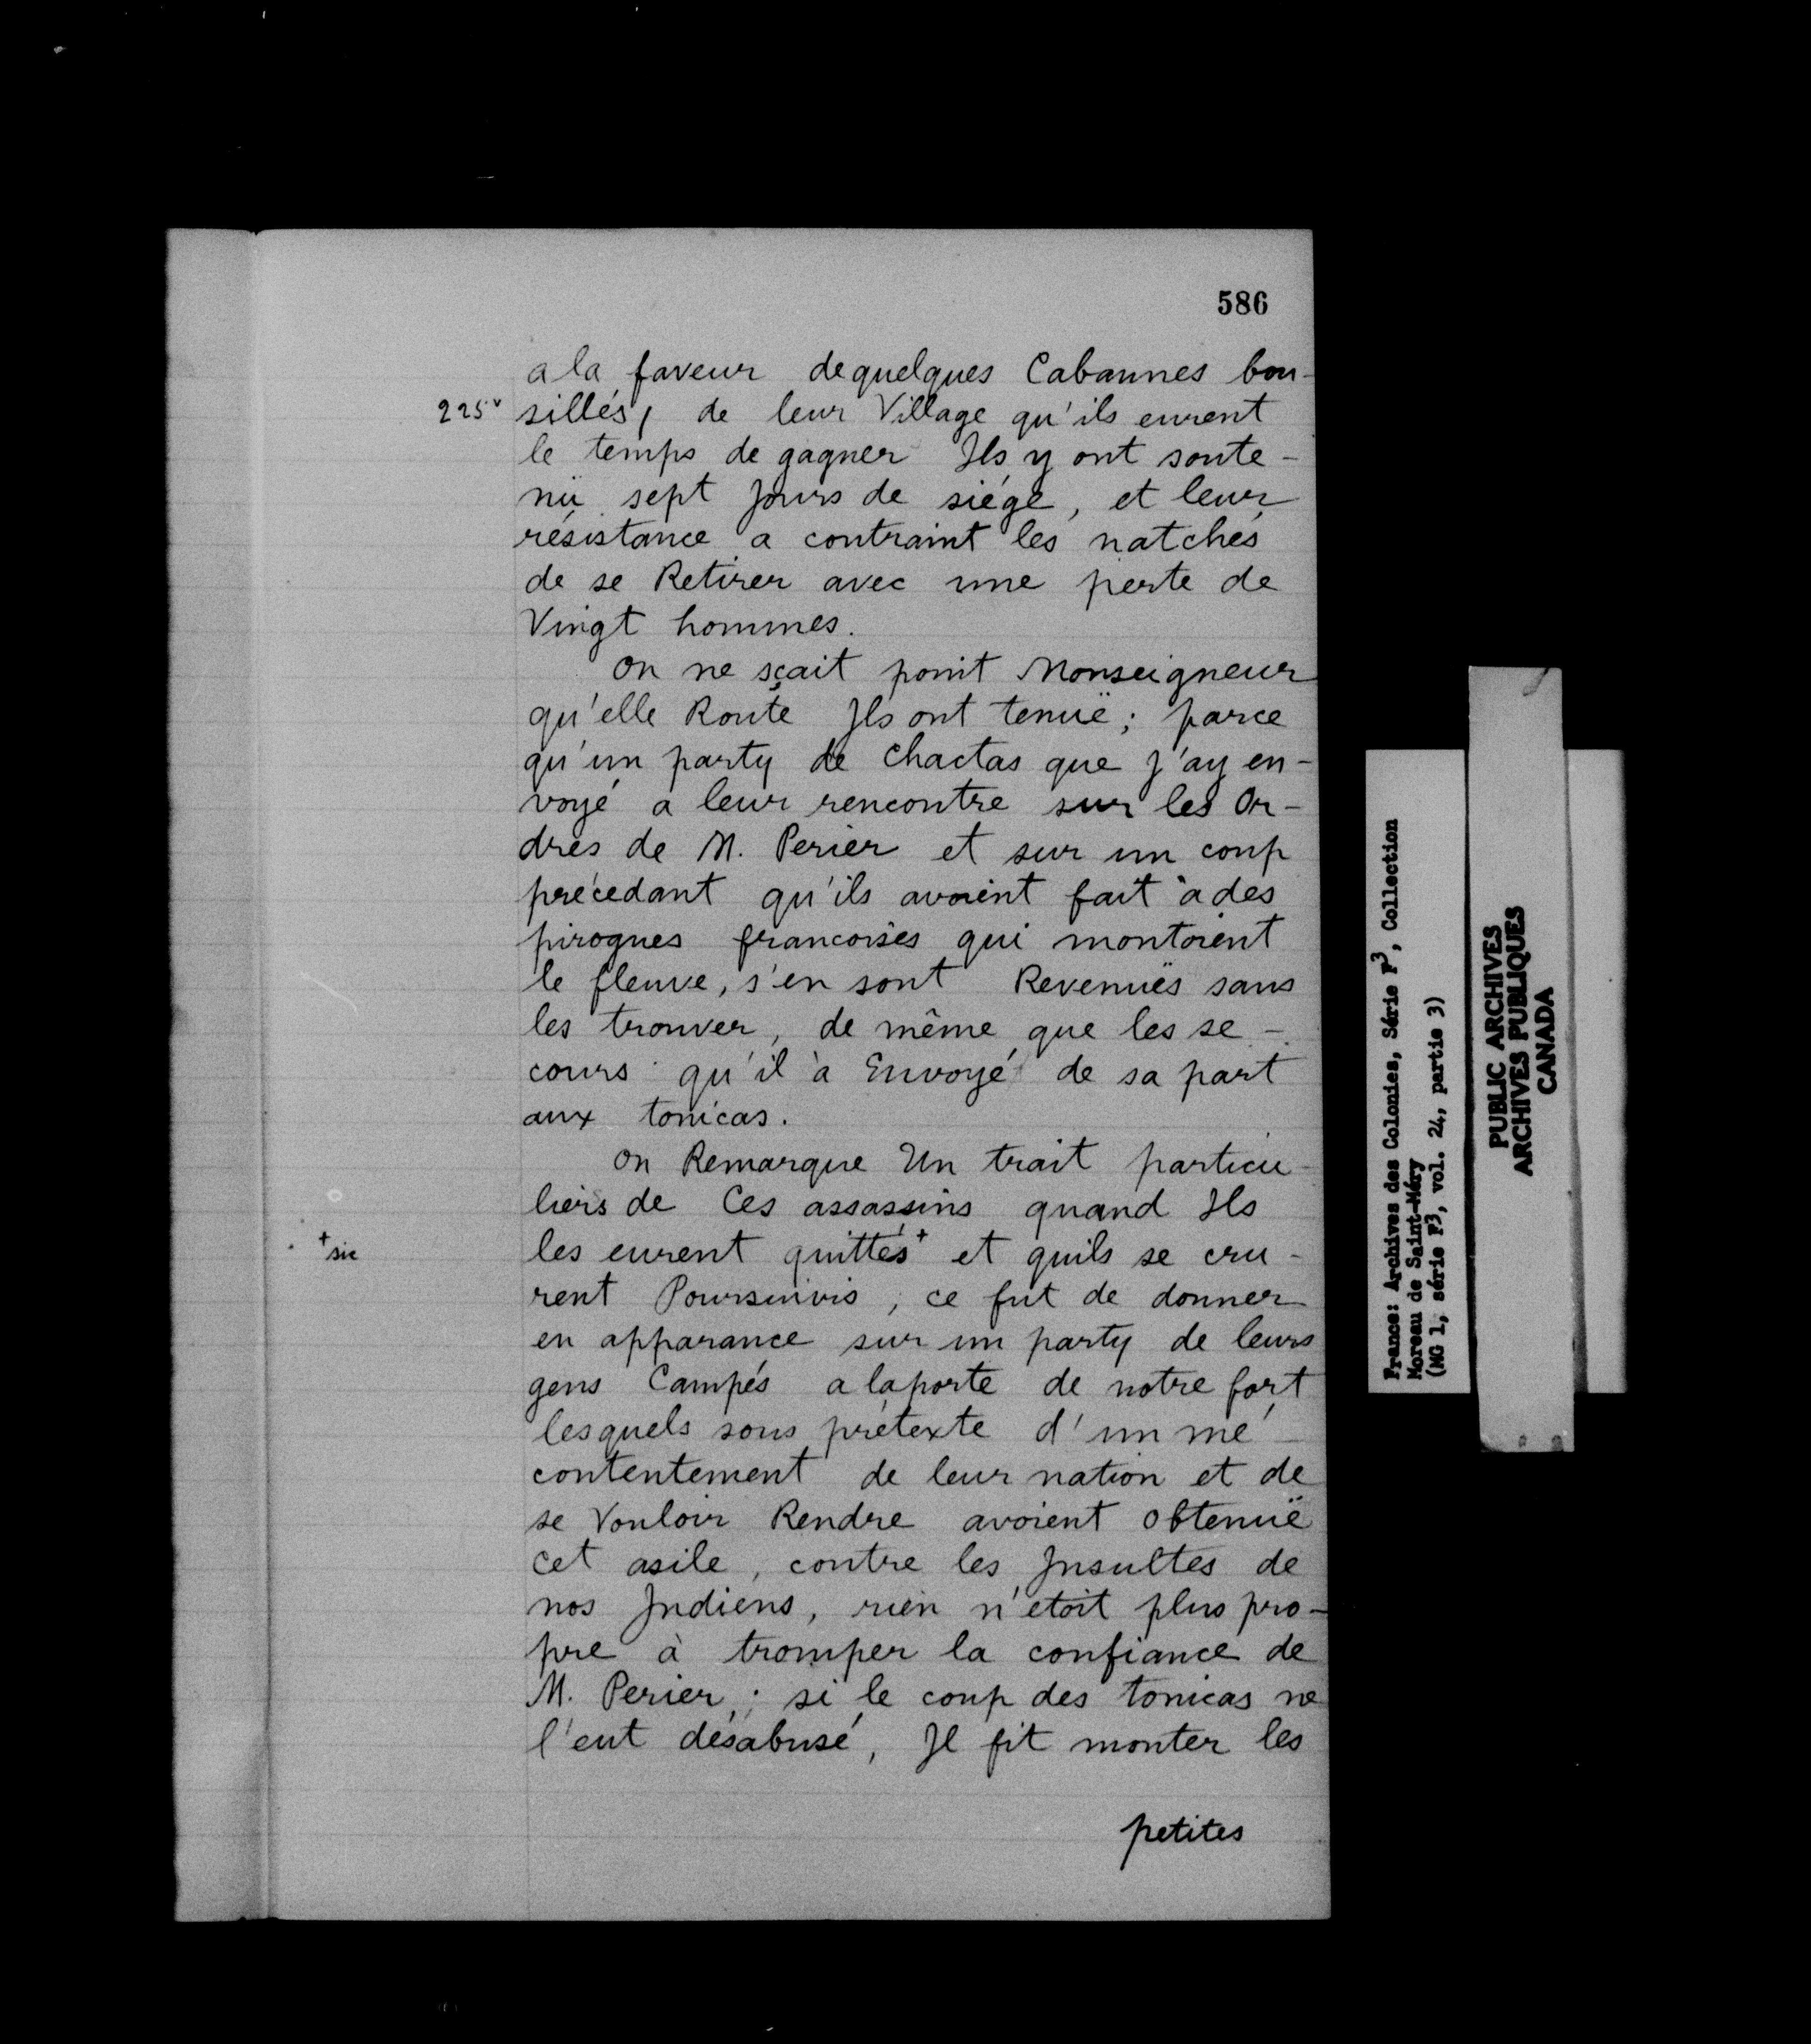 586
a la faveur dequelques Cabannes bou-
225v sillés, de leur Village qu'ils eurent
le temps de gagner Ils y ont soute-
nü sept Jours de siége, et leur
résistance a contraint les natchés
de se Retirer avec une perte de
Vingt hommes.
On ne sçait point Monseigneur
qu'elle Route Ils ont tenuë; parce
qu'un party de Chactas que J'ay en-
voyé a leur rencontre sur les Or-
dres de M. Perier et sur un coup
précedant qu'ils avoient fait à des
pirogues francoises qui montoient
le fleuve, s'en sont Revenuës sans
les trouver, de même que les se-
cours qu'il à Envoyé de sa part
aux tonicas.
On Remarque Un trait particu-
liers de Ces assassins quand Ils
+sic les eurent quittés+ et quils se cru-
rent Poursuivis, ce fut de donner
en apparance sur un party de leurs
gens Campés a laporte de notre fort
lesquels sous prétexte d'un mé-
contentement de leur nation et de
se Vouloir Rendre avoient obtenuë
cet asile, contre les Insultes de
nos Indiens, rien n'étoit plus pro-
pre à tromper la confiance de
M. Perier; si le coup des tonicas ne
l'eut désabusé, Il fit monter les
petites
France: Archives des Colonies, Série F3, Collection
Moreau de Saint-Méry
(MG 1, série F3, vol. 24, partie 3)
PUBLIC ARCHIVES
ARCHIVES PUBLIQUES
CANADA